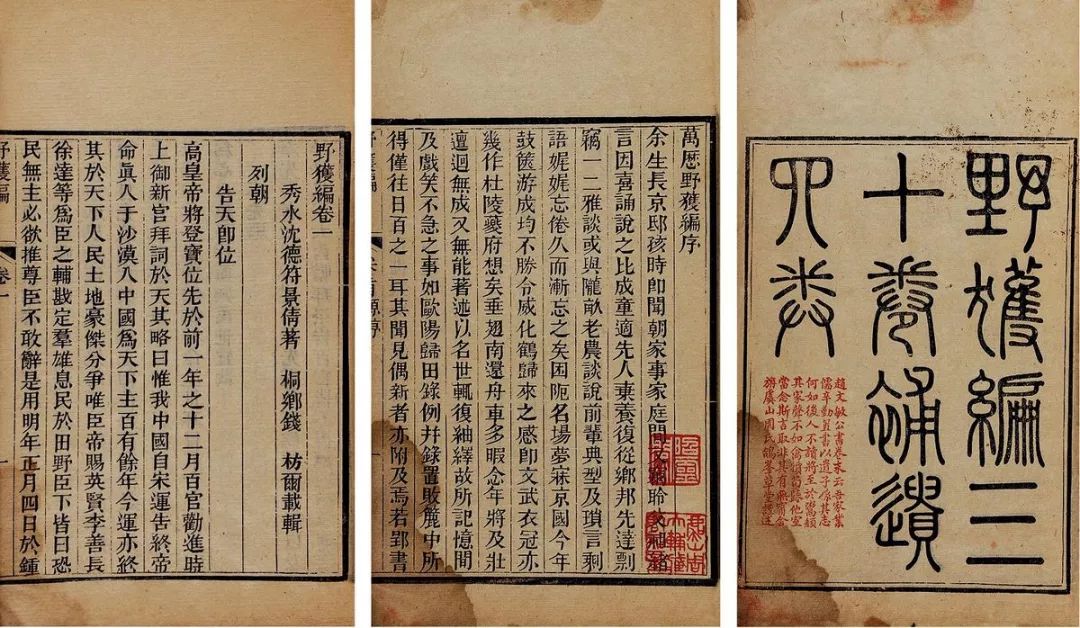 野獲編三
十卷補遺
四卷
趙文敏公書卷末云吾家業
儒辛勤置書以遺子孫其志
何如後人不讀將至於鬻頹
其家聲不如禽犢苟歸他室
當念斯言取非其有無寧舍
旃虞山周氏鴿峯草堂
萬厯野獲編序
余生長京邸孩時即聞朝家事家庭間聆父祖緒
言因喜誦說之比成童適先人棄養復從鄉邦先達剽
竊一二雅談或與隴畝老農談說前輩典型及瑣言剩
語娓娓忘倦久而漸忘之矣困阨名場夢寐京國今年
鼓篋游成均不勝令威化鶴歸來之感即文武衣冠亦
幾作杜陵夔府想矣垂翅南還舟車多暇念年將及壯
邅迴無成又無能著述以名世輒復紬繹故所記憶間
及戲笑不急之事如歐陽歸田錄例并錄置敗簏中所
得僅往日百之一耳其聞見偶新者亦附及焉若郢書
野獲編卷一
秀水沈德符景倩著 桐鄉錢枋爾載輯
列朝
告天即位
高皇帝將登寶位先於前一年之十二月百官勸進時
上御新宮拜詞於天其略曰惟我中國自宋運告終帝
命眞人于沙漠入中國爲天下主百有餘年今運亦終
其於天下人民土地豪傑分爭唯臣帝賜英賢李善長
徐達等爲臣之輔戡定羣雄息民於田野臣下皆曰恐
民無主必欲推尊臣不敢辭是用明年正月四日於鍾
野獲編 卷一